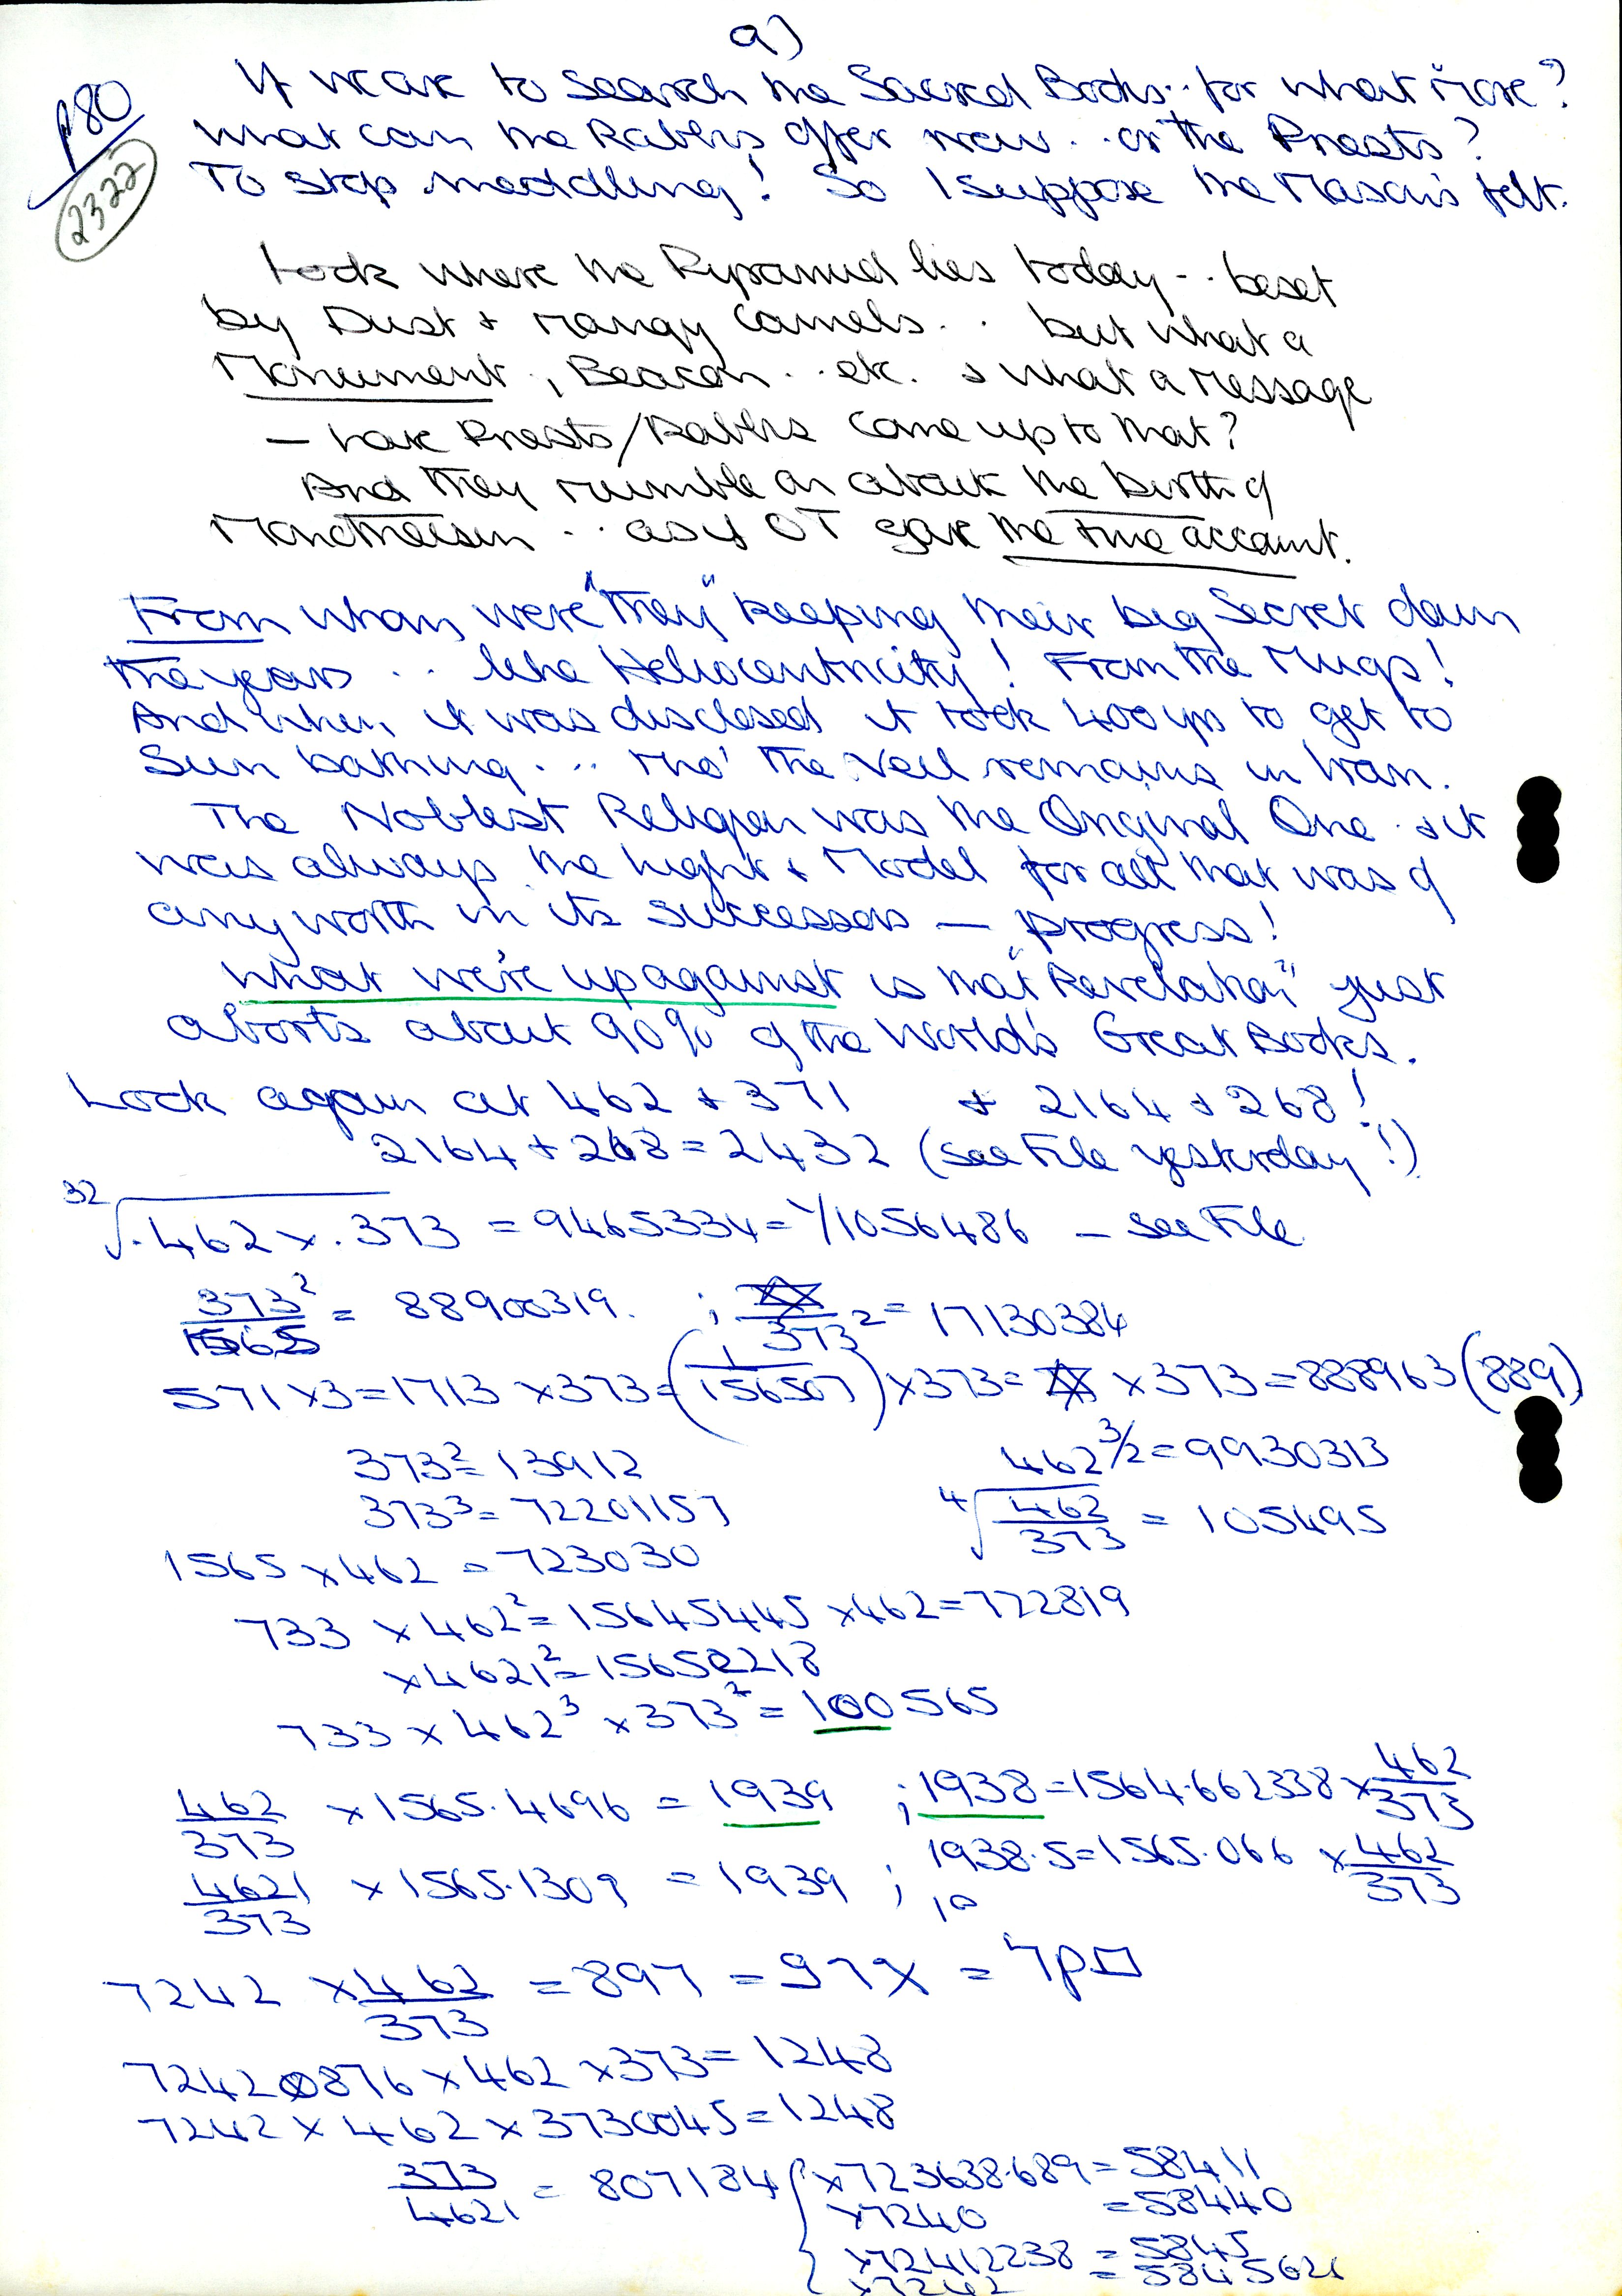 a)
p80
2322
If we are to search the Sacred Books.. for what more?
What can the Rabbis offer now.. or the Priests?
To stop meddling! So I suppose the Mason's felt.
Look where the Pyramid lies today -- beset
by Dust + Mangy Camels.. but what a
Monument, Beacon.. etc. + what a message
— have Priests/Rabbis come up to that?
And they mumble on about the birth of
Monotheism.. as if OT gave the true account.
From whom were "they" keeping their big Secret down
the years .. like Heliocentricity! From the Mugs!
And when it was disclosed it took 400 yrs to get to
Sun bathing... tho' the Veil remains in Iran.
The Noblest Religion was the Original One + it
was always the light + Model for all that was of
any worth in its successors — progress!
What we're up against is that "Revelation" just
aborts about 90% of the World's Great Books.
Look again at 462 + 371 + 2164 + 268!
2164 + 268 = 2432 (see File yesterday!)
32√.462 x .373 = 9465334 = 1/1056486 - see File
373²/1565 = 88900319. ; /373² = 17130384
571 x 3 = 1713 x 373 = (1/156507) x 373 = x 373 = 888963 (889)
373² = 13912
462^3/2 = 9930313
373³ = 72201157
4√462/373 = 105495
1565 x 462 = 723030
733 x 462² = 15645445 x 462 = 722819
x 4621² = 15652218
733 x 462³ x 373² = 100565
462/373 x 1565.4696 = 1939 ; 1938 = 1564.662338 x 462/373
4621/373 x 1565.1309 = 1939 ; 1938.5 = 1565.066 x 462/373
10
7242 x 462/373 = 897 = 97X = 7p□
72420876 x 462 x 373 = 1248
7242 x 462 x 3730045 = 1248
373/4621 = 807184 { x 723638.689 = 58411
x 7240 = 58440
x 72412238 = 5845
x 7242 = 5845621